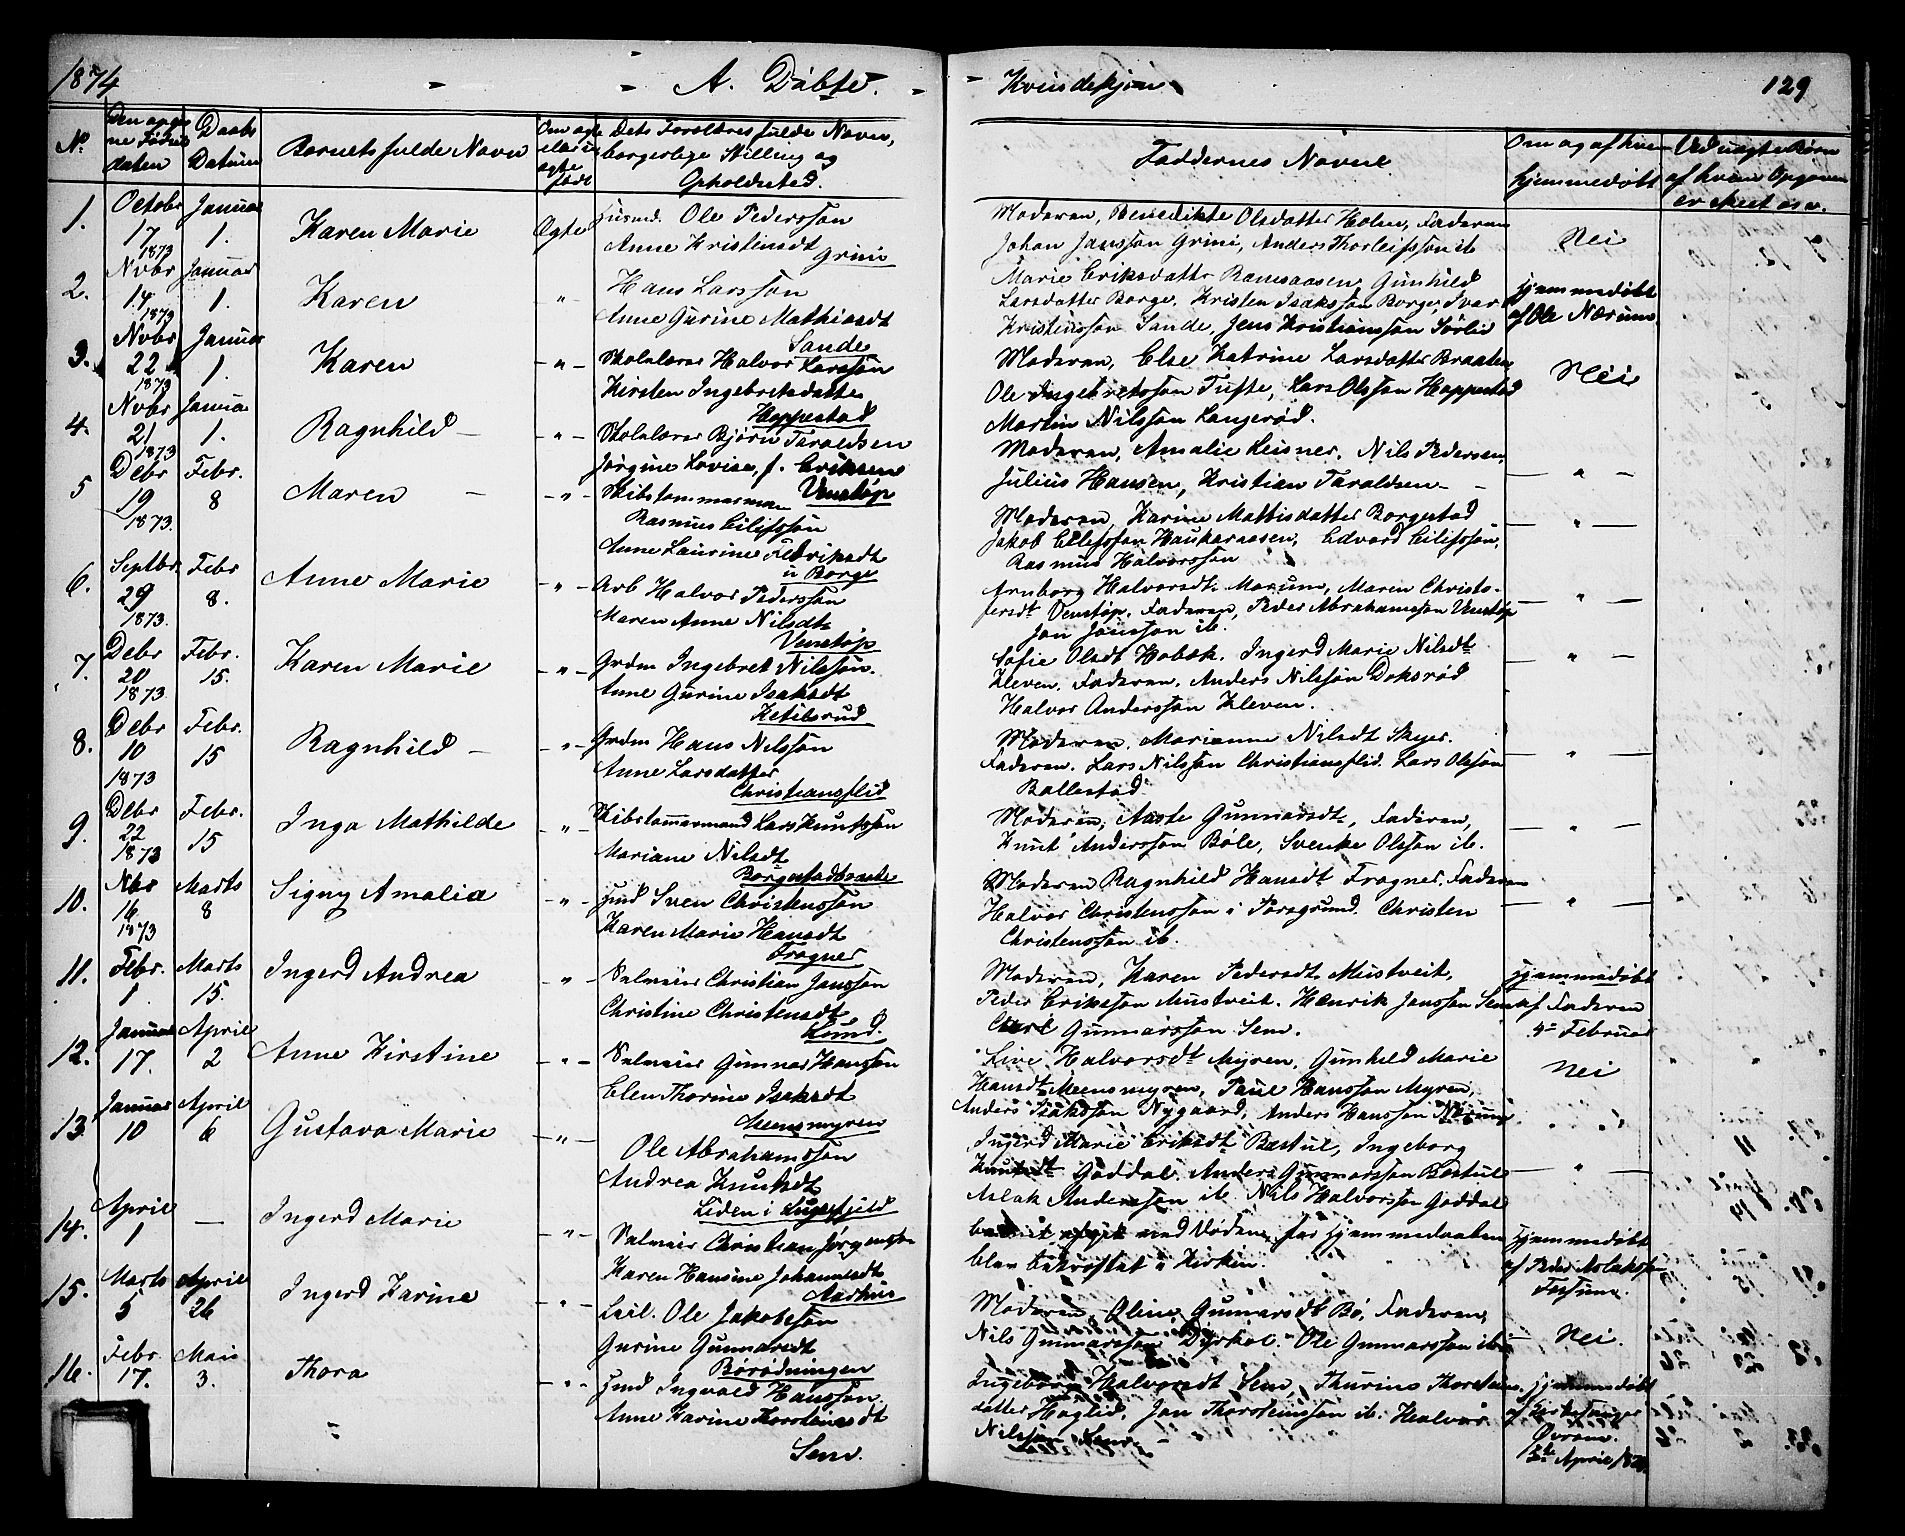 1874 A. Döbte. Kvindekjön 129
No. Den opgivne Födselsdaten Daabs Datum Barnets fulde Navn Om ægte eller uægte födt Dets Forældres fulde Navn, borgerlige Stilling og Opholdssted. Faddernes Navne Om og af hvem hjemmedöbt Ved uægte Börn af hvem Opgaven er skeet osv.
1. Octobr 17 1873 Januar 1. Karen Marie Ægte Husmd. Ole Pederssön
Anne Kristinsdt Grini
Moderen, Benedikte Olsdatter Holen, Faderen
Johan Janssön Grini, Anders Thorleifssön ib
Nei
2. Novbr 14 1873 Januar 1. Karen -"- Hans Larssön
Anne Gurine Mathiasdt
Sande
Marie Eriksdatter Ramsaasen, Gunhild
Larsdatter Borge, Kristen Isakssön Borge, Ivar
Kristenssön Sande, Jens Kristianssön Sörlie
hjemmedöbt
af Ole Nærum.
3. Novbr 22 1873 Januar 1. Karen -"- Skolelærer Halvor Larssön
Kirsten Ingebretsdatter
Hoppestad
Moderen, Else Katrine Larsdatter Braaten
Ole Ingebretssön Tufte, Lars Olssön Hoppestad
Martin Nilssön Langeröd.
Nei
4. Novbr 21 1873 Januar 1. Ragnhild -"- Skolelærer Björn Taraldsen
Jörgine Lovise, f. Eriksen
Venstöp
Moderen, Amalie Leisner, Nils Pedersen,
Julius Hansen, Kristian Taraldsen
- " -
5 Debr 19 1873. Febr. 8 Maren -"- Skibstömmerman
Rasmus Eilifssön
Anne Laurine
u Borge
Moderen, Karine Mattisdatter Borgestad
Jakob Eilifssön Haukaraasen, Edvard Eilifssön,
Rasmus Halvorssön
- " -
6. Septbr. 29 1873. Febr 8. Anne Marie -"- Arb Halvor Pederssön
Maren Anne Nilsdt
Venstöp
Arnborg Halvorsdt. Mærum, Maren Christofersdt
Venstöp. Faderen, Peder Abrahamssön Venstöp
Jon Jonssön ib.
- " -
7. Debr 20 1873 Febr. 15. Karen Marie -"- Grdm Ingebret Nilssön.
Anne Gurine Isaksdt
Ketilsrud
Sofie Olsdt Hobæk. Ingerd Marie Nilsdt
Kleven. Faderen. Anders Nilssön Doksröd
Halvor Anderssön Kleven.
- " -
8. Debr 10 1873 Febr. 15 Ragnhild -"- Grdm Hans Nilssön
Anne Larsdatter
Christianslid
Moderen. Marianne Nilsdt Skyer.
Faderen. Lars Nilssön Christianslid. Lars Olssön
Ballestad
- " -
9. Debr 22 1873 Febr. 15 Inga Mathilde -"- Skibstömmermand Lars Knutssön
Mariane Nilsdt
Borgestadbakke
Moderen, Aaste Gunnarsdt, Faderen,
Knut Anderssön Böle, Svenke Olssön ib.
- " -
10. Nbr 16 1873 Marts 8 Signy Amalia -"- Hmd Sven Christenssön
Karen Marie Hansdt
Frogner
Moderen Ragnhild Hansdt Frogner. Faderen
Halvor Christenssön i Porsgrund. Christen
Christenssön ib.
- " -
11. Febr. 1 Marts 15. Ingerd Andrea -"- Selveier Christian Janssön
Christine Christensdt
Lund.
Moderen, Karen Pedersdt Mustveit,
Peder Erikssön Mustveit. Henrik Janssön Sem
Carl Gunnarssön Sem.
hjemmedöbt
af Faderen
4de Februar
12. Januar 17. April 2 Anne Kirstine -"- Selveier Gunnar Hanssön
Elen Thorine Isaksdt
Meensmyren
Live Halvorsdt Myren, Gunhild Marie
Hansdt Meensmyren, Paul Hanssön Myren,
Anders Isakssön Nygaard, Anders Hanssön
Nei
13. Januar 10 April 6 Gustava Marie -"- Ole Abrahamssön
Andrea Knutsdt
Liden i Luksefjeld
Ingerd Marie Eriksdt Bestul, Ingeborg
Knutsdt Goddal. Anders Gunnarssön Bestul
Aslak Anderssön ib. Nils Halvorssön Goddal
- " -
14. April 1 - Ingerd Marie -"- Selveier Christian Jörgenssön
Karen Hansine Johannesdt
Aarhus
Barnet afgik med Döden för Hjemmedaaben
blev bekræftet i Kirken.
hjemmedöbt
af Peder Aslakssön
Fossum.
15. Marts 5 April 26 Ingerd Karine -"- Leil. Ole Jakobssön
Gurine Gunnarsdt
Börödningen
Moderen, Oline Gunnarsdt Bö, Faderen,
Nils Gunnarssön Dyrkol. Ole Gunnarssön ib.
Nei.
16. Febr 17. Mai 3. Thora -"- Hmd Ingvald Hanssön,
Anne Karine Thorsteinsdt
Sem.
Ingeborg Halvorsdt Sem, Thurine Thorsteinsdatter
Haglid, Jan Thorsteinssön ib. Halvor
Nilssön Sem.
hjemmedöbt
af Kirkesanger
Övrum.
April 1874